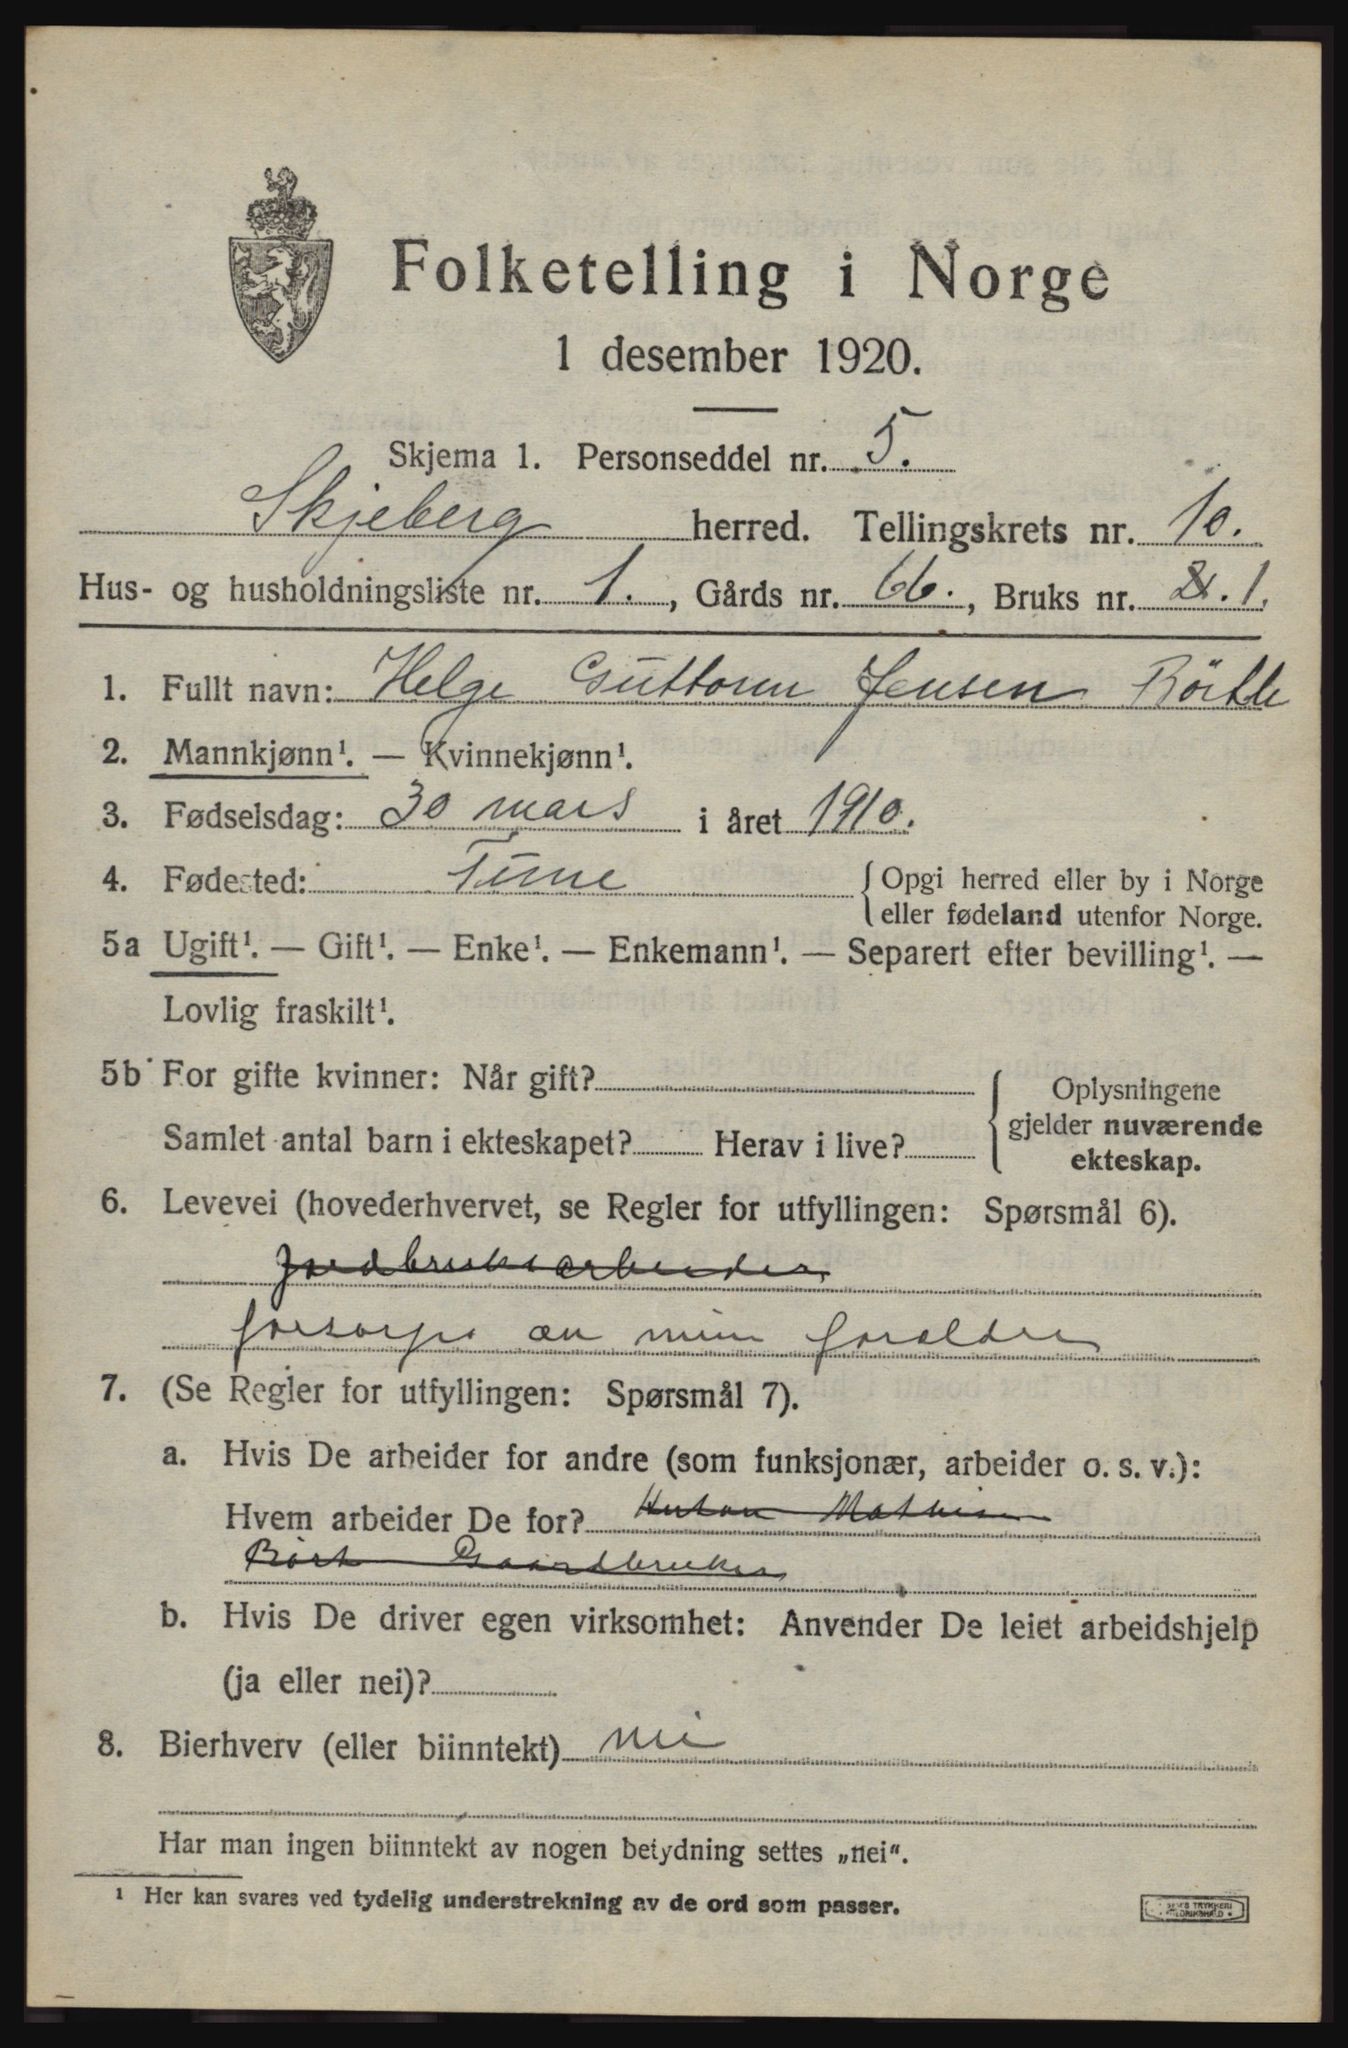 Folketelling i Norge
1 desember 1920.
Skjema 1. Personseddel nr. 5.
Skjeberg herred. Tellingskrets nr. 10.
Hus- og husholdningsliste nr. 1., Gårds nr. 66., Bruks nr. 1.
1. Fullt navn: Helge Guttorm Jensen
2. Mannkjønn¹. — Kvinnekjønn¹.
3. Fødselsdag: 30 mars i året 1910.
4. Fødested: Tune
{Opgi herred eller by i Norge
eller fødeland utenfor Norge.
5a Ugift¹. — Gift¹. — Enke¹. — Enkemann¹. — Separert efter bevilling¹. —
Lovlig fraskilt¹.
5b For gifte kvinner: Når gift?
Samlet antal barn i ekteskapet? Herav i live?
{Oplysningene
gjelder nuværende
ekteskap.
6. Levevei (hovederhvervet, se Regler for utfyllingen: Spørsmål 6).
Jordbruksarbeider
forsørges av mine forældre
7. (Se Regler for utfyllingen: Spørsmål 7).
a. Hvis De arbeider for andre (som funksjonær, arbeider o. s. v.):
Hvem arbeider De for? Anton Mathisen
Gaardbruker
b. Hvis De driver egen virksomhet: Anvender De leiet arbeidshjelp
(ja eller nei)?
8. Bierhverv (eller biinntekt) nei
Har man ingen biinntekt av nogen betydning settes „nei“.
¹ Her kan svares ved tydelig understrekning av de ord som passer.
TRYKKERI